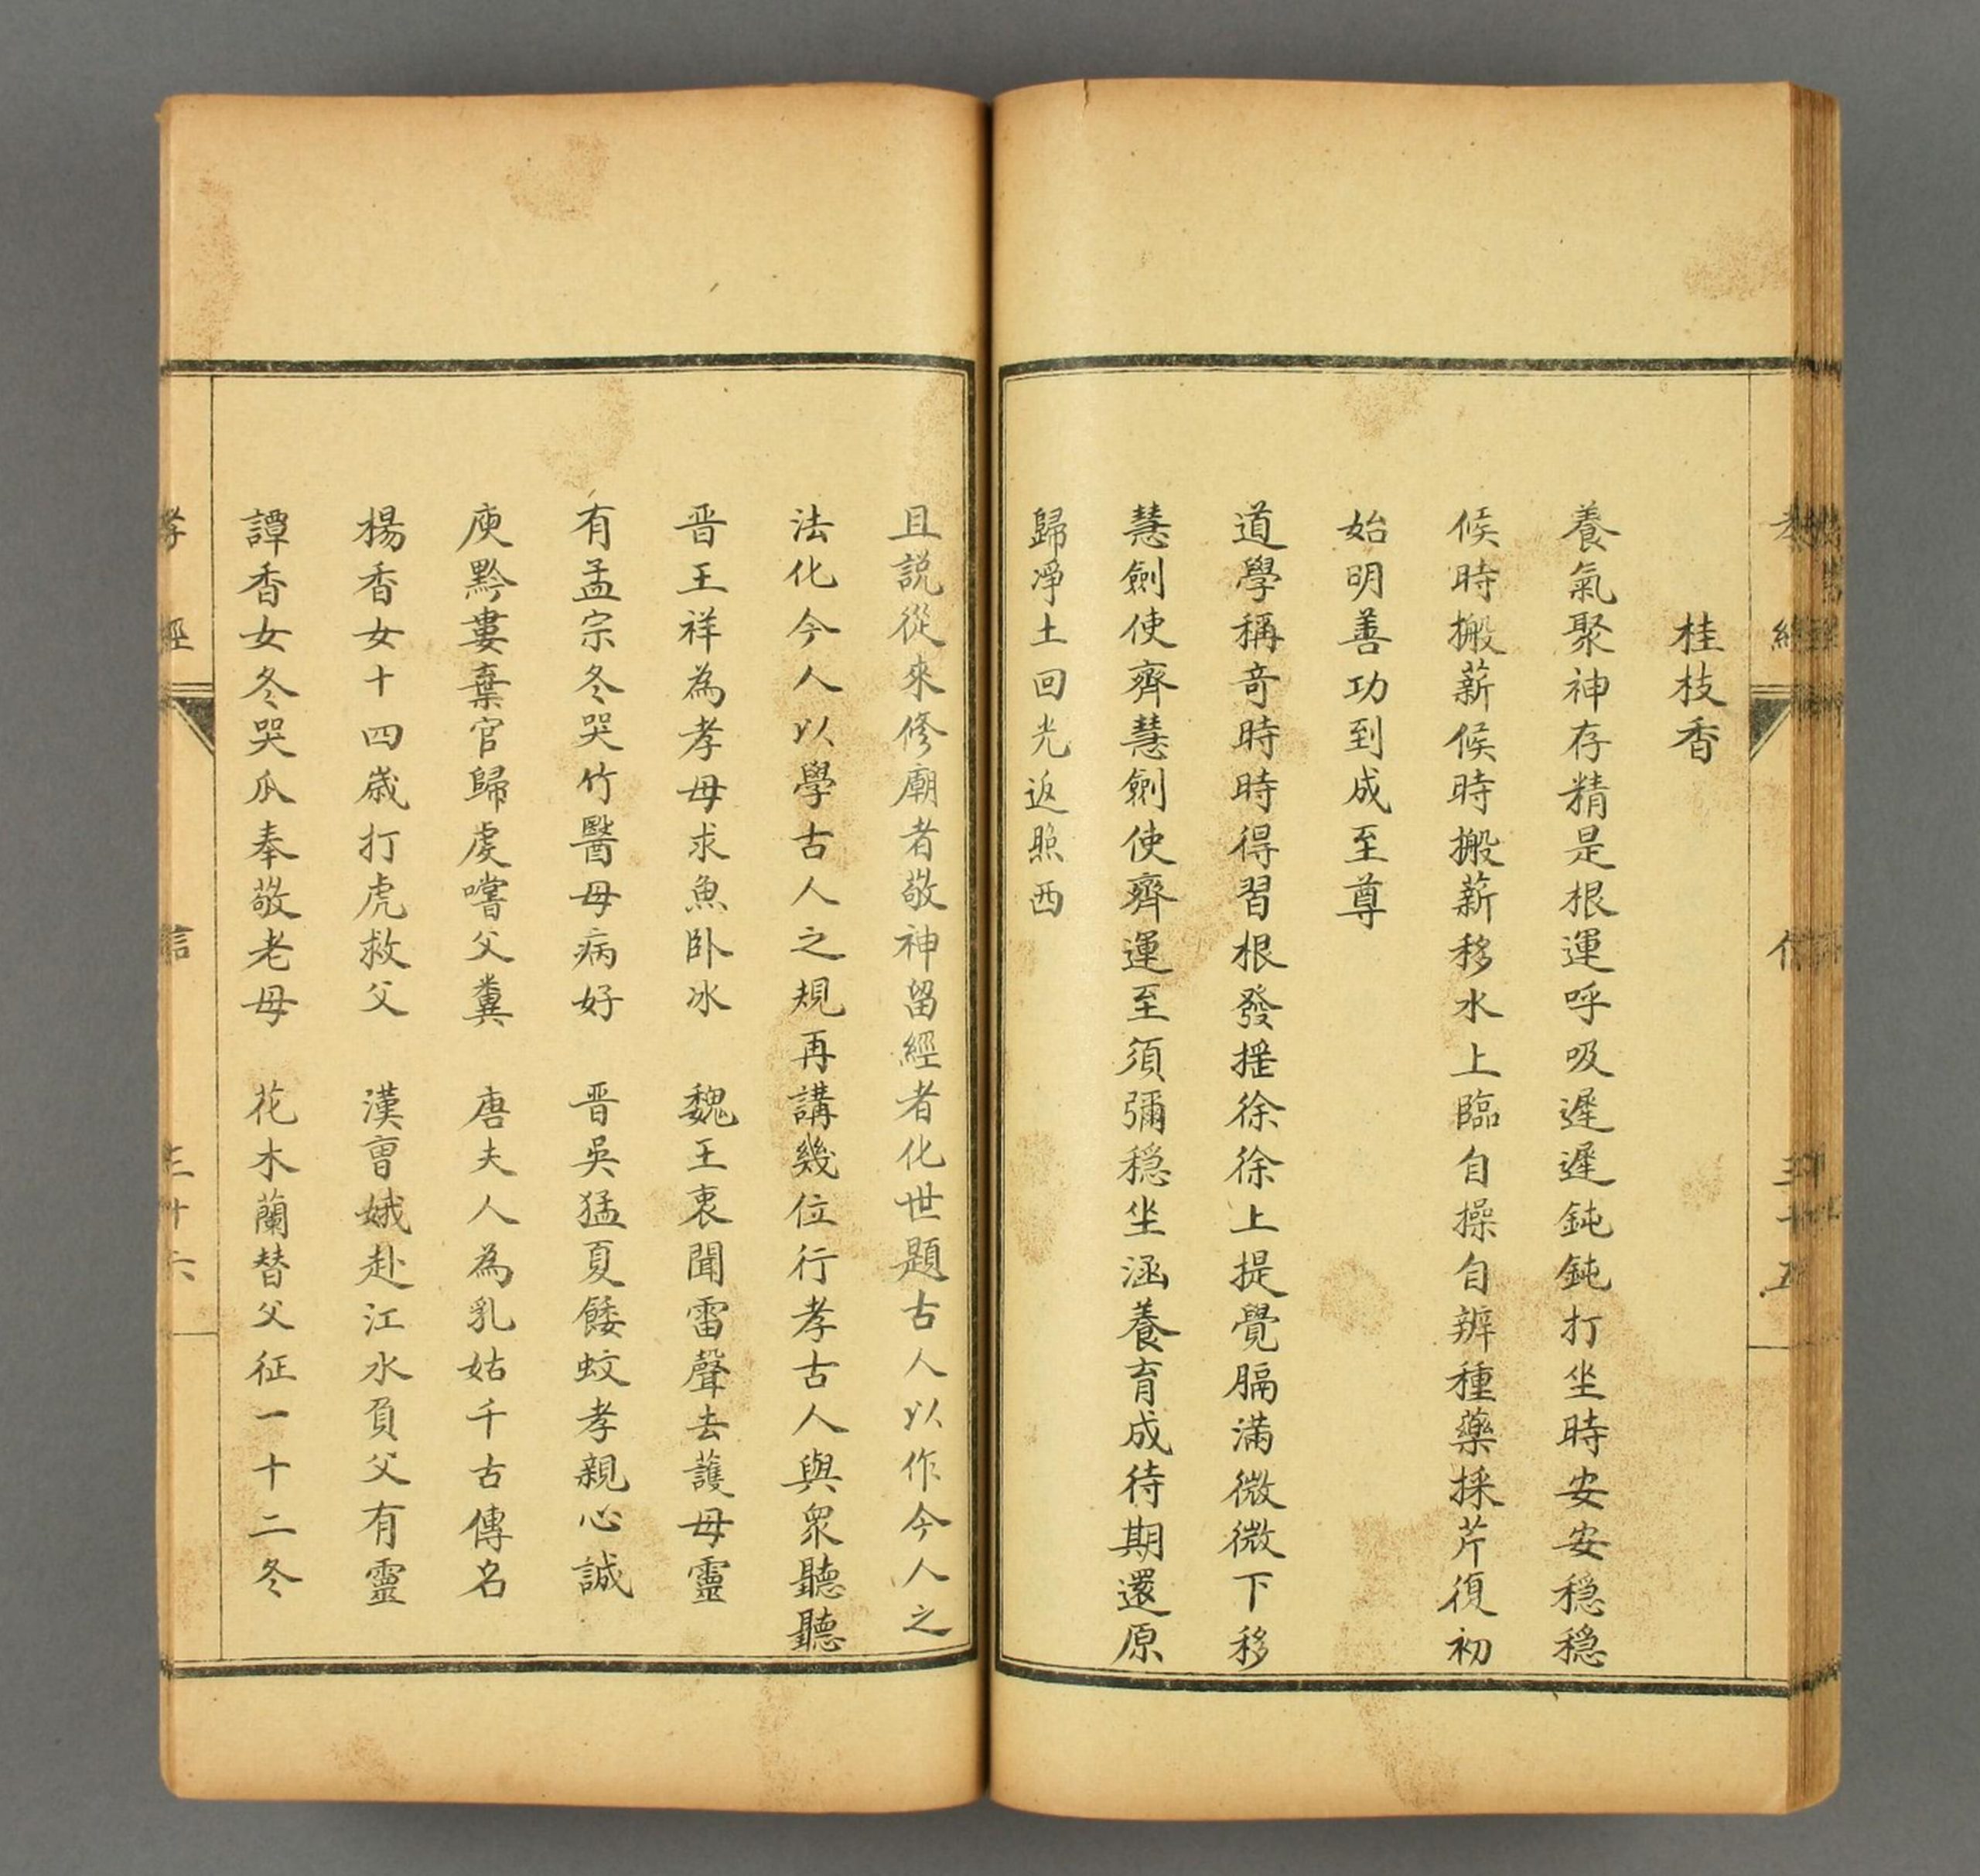 桂枝香
養氣聚神存精是根運呼吸遲遲鈍鈍打坐時安安穩穩
候時搬薪候時搬薪移水上臨自操自辨種藥採芹復初
始明善功到成至尊
道學稱奇時時得習根發㨱徐徐上提覺膈滿微微下移
慧劍使齊慧劍使齊運至須彌穩坐涵養育成待期還原
歸淨土回光返照西
且說從來修廟者敬神留經者化世題古人以作今人之
法化今人以學古人之規再講幾位行孝古人與眾聽聽
晋王祥為孝母求魚卧冰　魏王衷聞雷聲去護母靈
有孟宗冬哭竹醫母病好　晋吳猛夏餧蚊孝親心誠
庾黔婁棄官歸虔嚐父糞　唐夫人為乳姑千古傳名
楊香女十四歲打虎救父　漢曹娥赴江水負父有靈
譚香女冬哭瓜奉敬老母　花木蘭替父征一十二冬
孝經　信　三十六